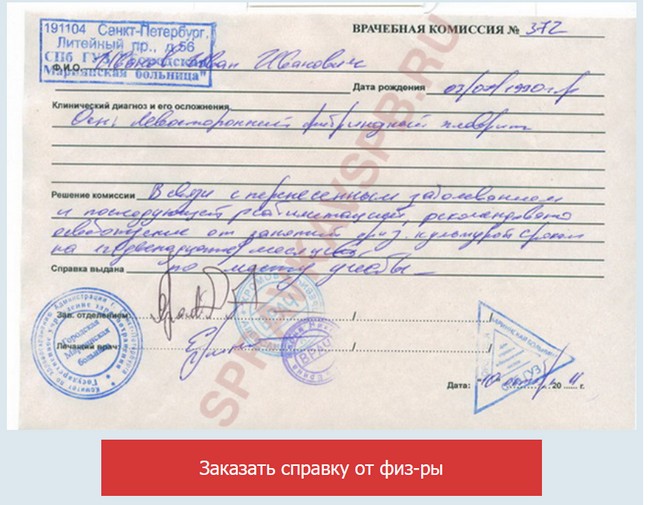 191104 Санкт-Петербург,
Литейный пр., д.56
СПб ГУЗ "Городская
Мариинская больница"
ВРАЧЕБНАЯ КОМИССИЯ № 372
Ф.И.О. Иванов Иван Иванович
Дата рождения 1990 г.р
Клинический диагноз и его осложнения
Осн: Левосторонний фибринозный плеврит
Решение комиссии В связи с перенесенным заболеванием
и последующей реабилитацией, рекомендовано
освобождение от занятий физ. культурой сроком
на двенадцать месяцев
Справка выдана по месту учебы
Зав. отделением: / /
Лечащий врач: / /
Городская
Мариинская
больница
ВРАЧ
Дата: 10 20 11 г.
SPRAVKAVSPB.RU
Заказать справку от физ-ры